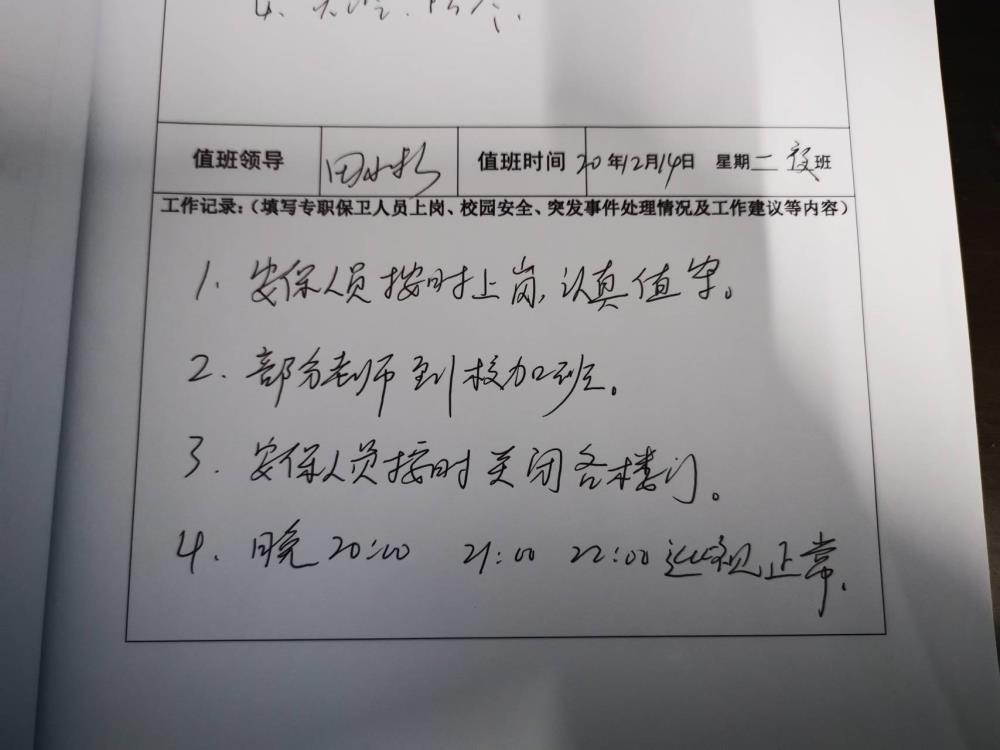 4、
值班领导 田 值班时间 20年12月14日 星期二 夜班
工作记录:(填写专职保卫人员上岗、校园安全、突发事件处理情况及工作建议等内容)
1. 安保人员按时上岗,认真值守。
2. 部分老师到校加班。
3. 安保人员按时关闭各楼门。
4. 晚20:00 21:00 22:00 巡视正常.